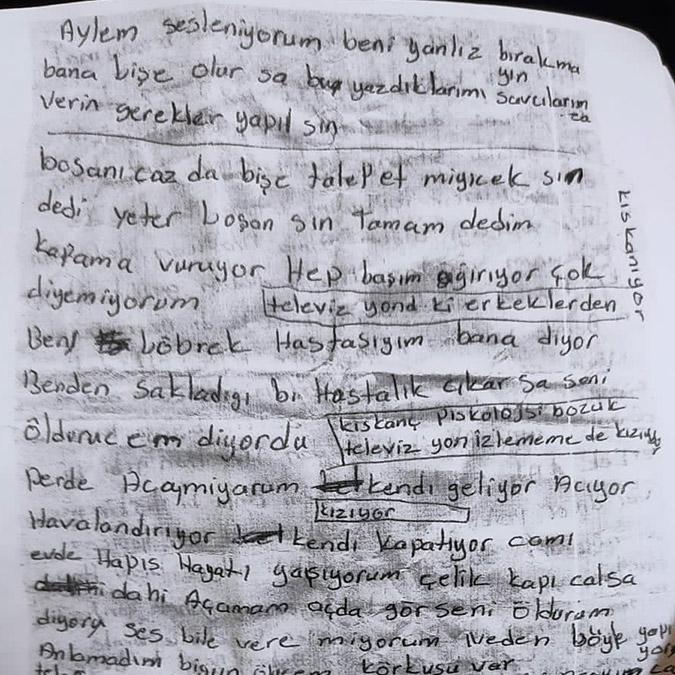 Aylem sesleniyorum beni yanlız bırakma
yın
bana bişe olur sa bu yazdıklarımı savcılarım
za
verin gerekler yapıl sın
boşanıcaz da bişe talep et miyicek sin
dedi yeter boşan sın tamam dedim
kapama vuruyor Hep başım ağırıyor çok
diyemiyorum televiz yond ki erkeklerden
kıskanıyor
Ben böbrek Hastasıyım bana diyor
Benden sakladığı bi Hastalık çıkar sa seni
öldürüc em diyordu
kıskanç piskolojsi bozuk
televiz yon izlememe de kızıyor
perde Açaymiyarum kendi geliyor Acıyor
kızıyor
Havalandırıyor kendi kapatıyor camı
evde Hapis Hayatı yaşıyorum çelik kapı calsa
dahi Açamam açda gör seni öldürüm
diyory ses bile vere miyorum neden böyle yapı
yor
Anlamadım bigün korkusu var